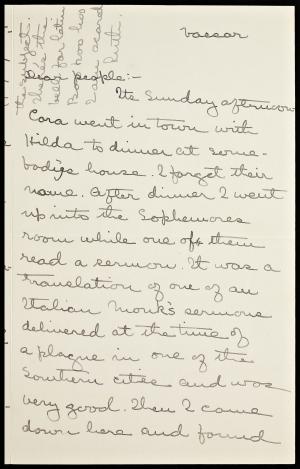 Vassar
Dear people:-
Its Sunday afternoon
Cora went in town with
Hilda to dinner at some-
bodys house. I forget their
name. After dinner I went
up into the Sophomores
room while one of them
read a sermon. It was a
translation of one of an
Italian monk's sermons
delivered at the time of
a plague in one of the
Southern cities and was
very good. Then I came
down here and found
the subject.
There's the
bell for Latin